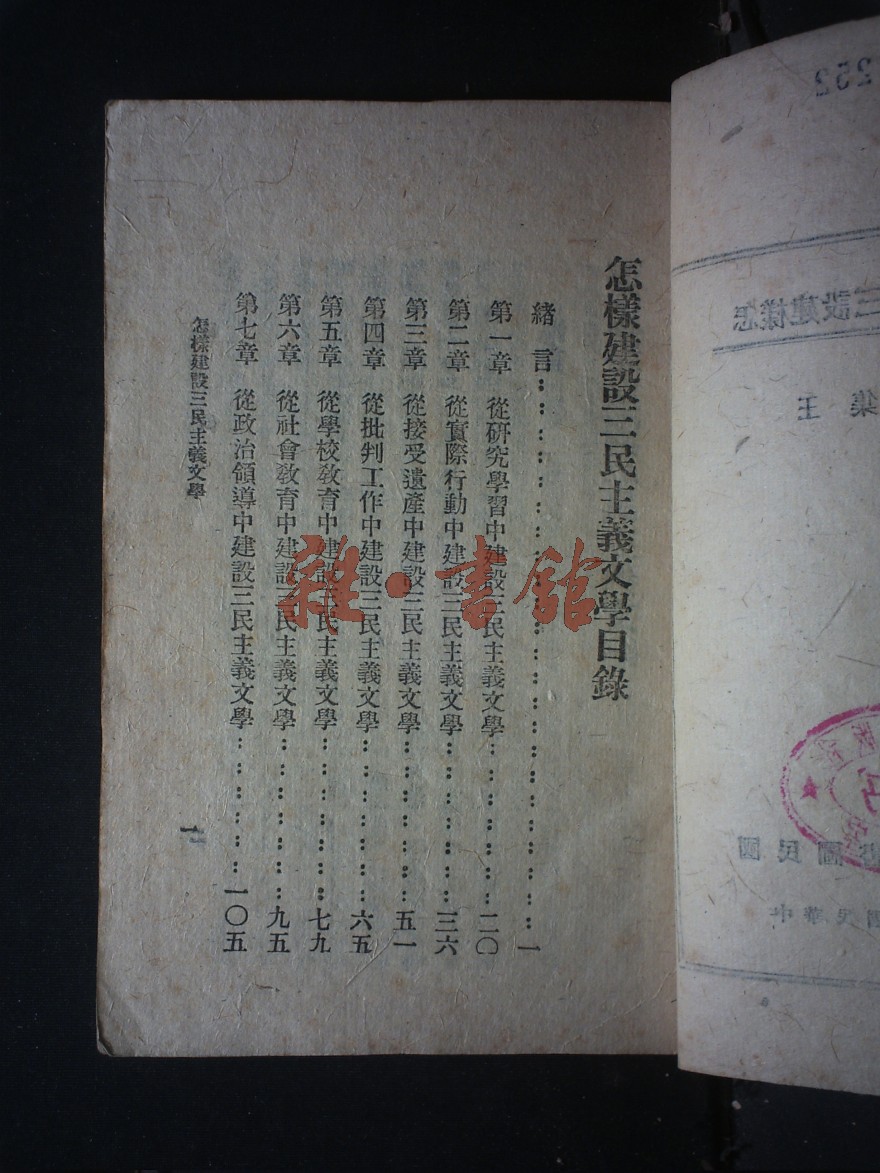 怎樣建設三民主義文學目錄
緒言……………………一
第一章 從研究學習中建設三民主義文學…………二〇
第二章 從實際行動中建設三民主義文學…………三六
第三章 從接受遺產中建設三民主義文學…………五一
第四章 從批判工作中建設三民主義文學…………六五
第五章 從學校教育中建設三民主義文學…………七九
第六章 從社會教育中建設三民主義文學…………九五
第七章 從政治領導中建設三民主義文學…………一〇五
怎樣建設三民主義文學
一
雜·書館
252
怎樣建設三
王集